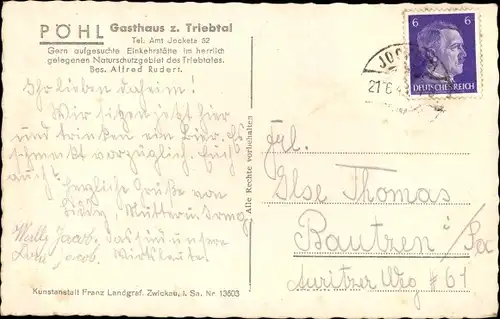 PÖHL Gasthaus z. Triebtal
Tel. Amt Jocketa 52
Gern aufgesuchte Einkehrstätte im herrlich
gelegenen Naturschutzgebiet des Triebtales.
Bes. Alfred Rudert.
6 6
DEUTSCHES REICH
JOC
21.6.4
Ihr lieben daheim!
Wir sitzen jetzt hier
und trinken ein Bier. Es
schmeckt vorzüglich. Euch
auch?
Herzliche Grüße von
Mutter u. Irmg.
Wally Jacob. das sind unsere
Jacob. Wirtsleute.
Alle Rechte vorbehalten
Frl.
Else Thomas
Bautzen /Sa
Auritzer Weg # 61
Kunstanstalt Franz Landgraf, Zwickau, i. Sa. Nr 13603